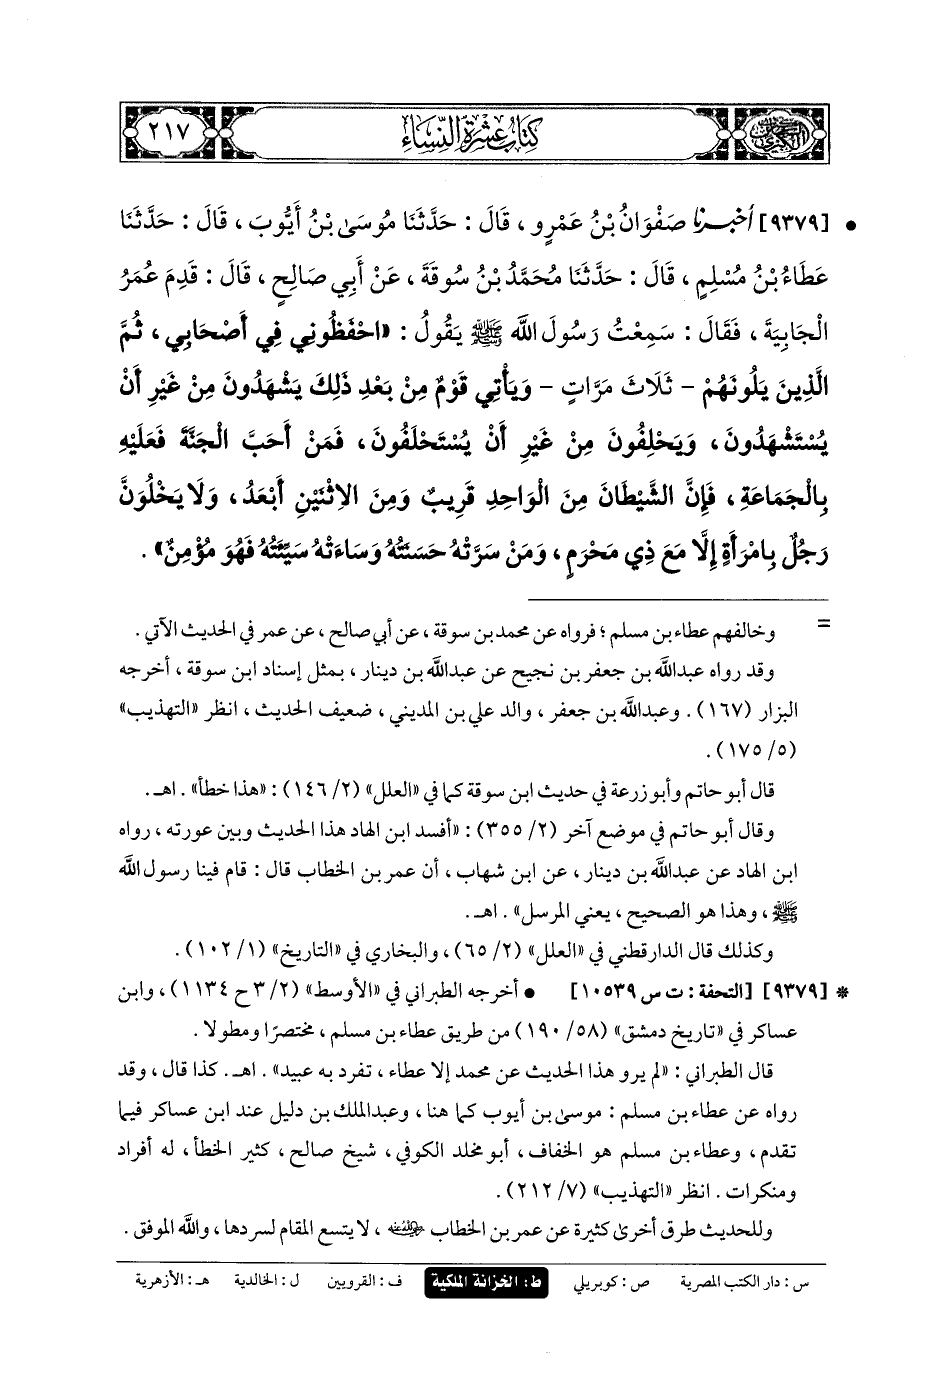 السنن الكبرى
كتاب عشرة النساء
٢١٧
• [٩٣٧٩] أخبرنا صَفْوَانُ بْنُ عَمْرٍو ، قَالَ : حَدَّثَنَا مُوسَىٰ بْنُ أَيُّوبَ ، قَالَ : حَدَّثَنَا
عَطَاءُ بْنُ مُسْلِمٍ ، قَالَ : حَدَّثَنَا مُحَمَّدُ بْنُ سُوقَةَ ، عَنْ أَبِي صَالِحٍ ، قَالَ : قَدِمَ عُمَرُ
الْجَابِيَةَ ، فَقَالَ : سَمِعْتُ رَسُولَ اللَّه ﷺ يَقُولُ : «احْفَظُونِي فِي أَصْحَابِي ، ثُمَّ
الَّذِينَ يَلُونَهُمْ - ثَلَاثَ مَرَّاتٍ - وَيَأْتِي قَوْمٌ مِنْ بَعْدِ ذَلِكَ يَشْهَدُونَ مِنْ غَيْرِ أَنْ
يُسْتَشْهَدُونَ ، وَيَحْلِفُونَ مِنْ غَيْرِ أَنْ يُسْتَحْلَفُونَ ، فَمَنْ أَحَبَّ الْجَنَّةَ فَعَلَيْهِ
بِالْجَمَاعَةِ ، فَإِنَّ الشَّيْطَانَ مِنَ الْوَاحِدِ قَرِيبٌ وَمِنَ الاِثْنَيْنِ أَبْعَدُ ، وَلَا يَخْلُوَنَّ
رَجُلٌ بِامْرَأَةٍ إِلَّا مَعَ ذِي مَحْرَمٍ ، وَمَنْ سَرَّتْهُ حَسَنَتُهُ وَسَاءَتْهُ سَيِّئَتُهُ فَهُوَ مُؤْمِنٌ» .
= وخالفهم عطاء بن مسلم ؛ فرواه عن محمد بن سوقة ، عن أبي صالح ، عن عمر في الحديث الآتي .
وقد رواه عبدالله بن جعفر بن نجيح عن عبدالله بن دينار ، بمثل إسناد ابن سوقة ، أخرجه
البزار (١٦٧) . وعبدالله بن جعفر ، والد علي بن المديني ، ضعيف الحديث ، انظر «التهذيب»
(٥/ ١٧٥) .
قال أبو حاتم وأبو زرعة في حديث ابن سوقة كما في «العلل» (٢/ ١٤٦) : «هذا خطأ» . اهـ.
وقال أبو حاتم في موضع آخر (٢/ ٣٥٥) : «أفسد ابن الهاد هذا الحديث وبين عورته ، رواه
ابن الهاد عن عبدالله بن دينار ، عن ابن شهاب ، أن عمر بن الخطاب قال : قام فينا رسول الله
ﷺ ، وهذا هو الصحيح ، يعني المرسل» . اهـ.
وكذلك قال الدارقطني في «العلل» (٢/ ٦٥) ، والبخاري في «التاريخ» (١/ ١٠٢) .
* [٩٣٧٩] [التحفة : ت س ١٠٥٣٩] • أخرجه الطبراني في «الأوسط» (٢/ ٣ ح ١١٣٤) ، وابن
عساكر في «تاريخ دمشق» (٥٨/ ١٩٠) من طريق عطاء بن مسلم ، مختصرًا ومطولا .
قال الطبراني : «لم يرو هذا الحديث عن محمد إلا عطاء ، تفرد به عبيد» . اهـ. كذا قال ، وقد
رواه عن عطاء بن مسلم : موسى بن أيوب كما هنا ، وعبدالملك بن دليل عند ابن عساكر فيما
تقدم ، وعطاء بن مسلم هو الخفاف ، أبو مخلد الكوفي ، شيخ صالح ، كثير الخطأ ، له أفراد
ومنكرات . انظر «التهذيب» (٧/ ٢١٢) .
وللحديث طرق أخرىٰ كثيرة عن عمر بن الخطاب ، لا يتسع المقام لسردها ، والله الموفق .
س : دار الكتب المصرية ص : كوبريلي ط : الخزانة الملكية ف : القرويين ل : الخالدية هـ : الأزهرية